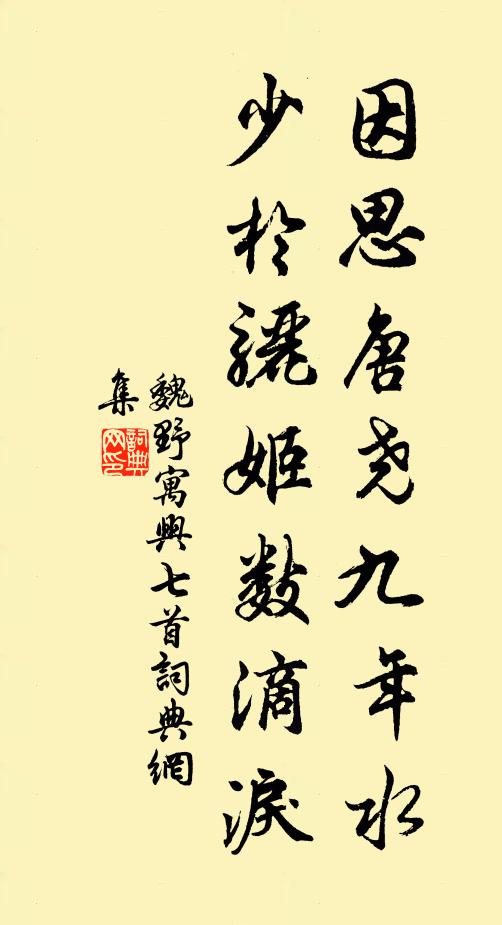 因思唐尧九年水
少於驪姬数滴淚
魏野寓興七首詞典網
集
詞典网印